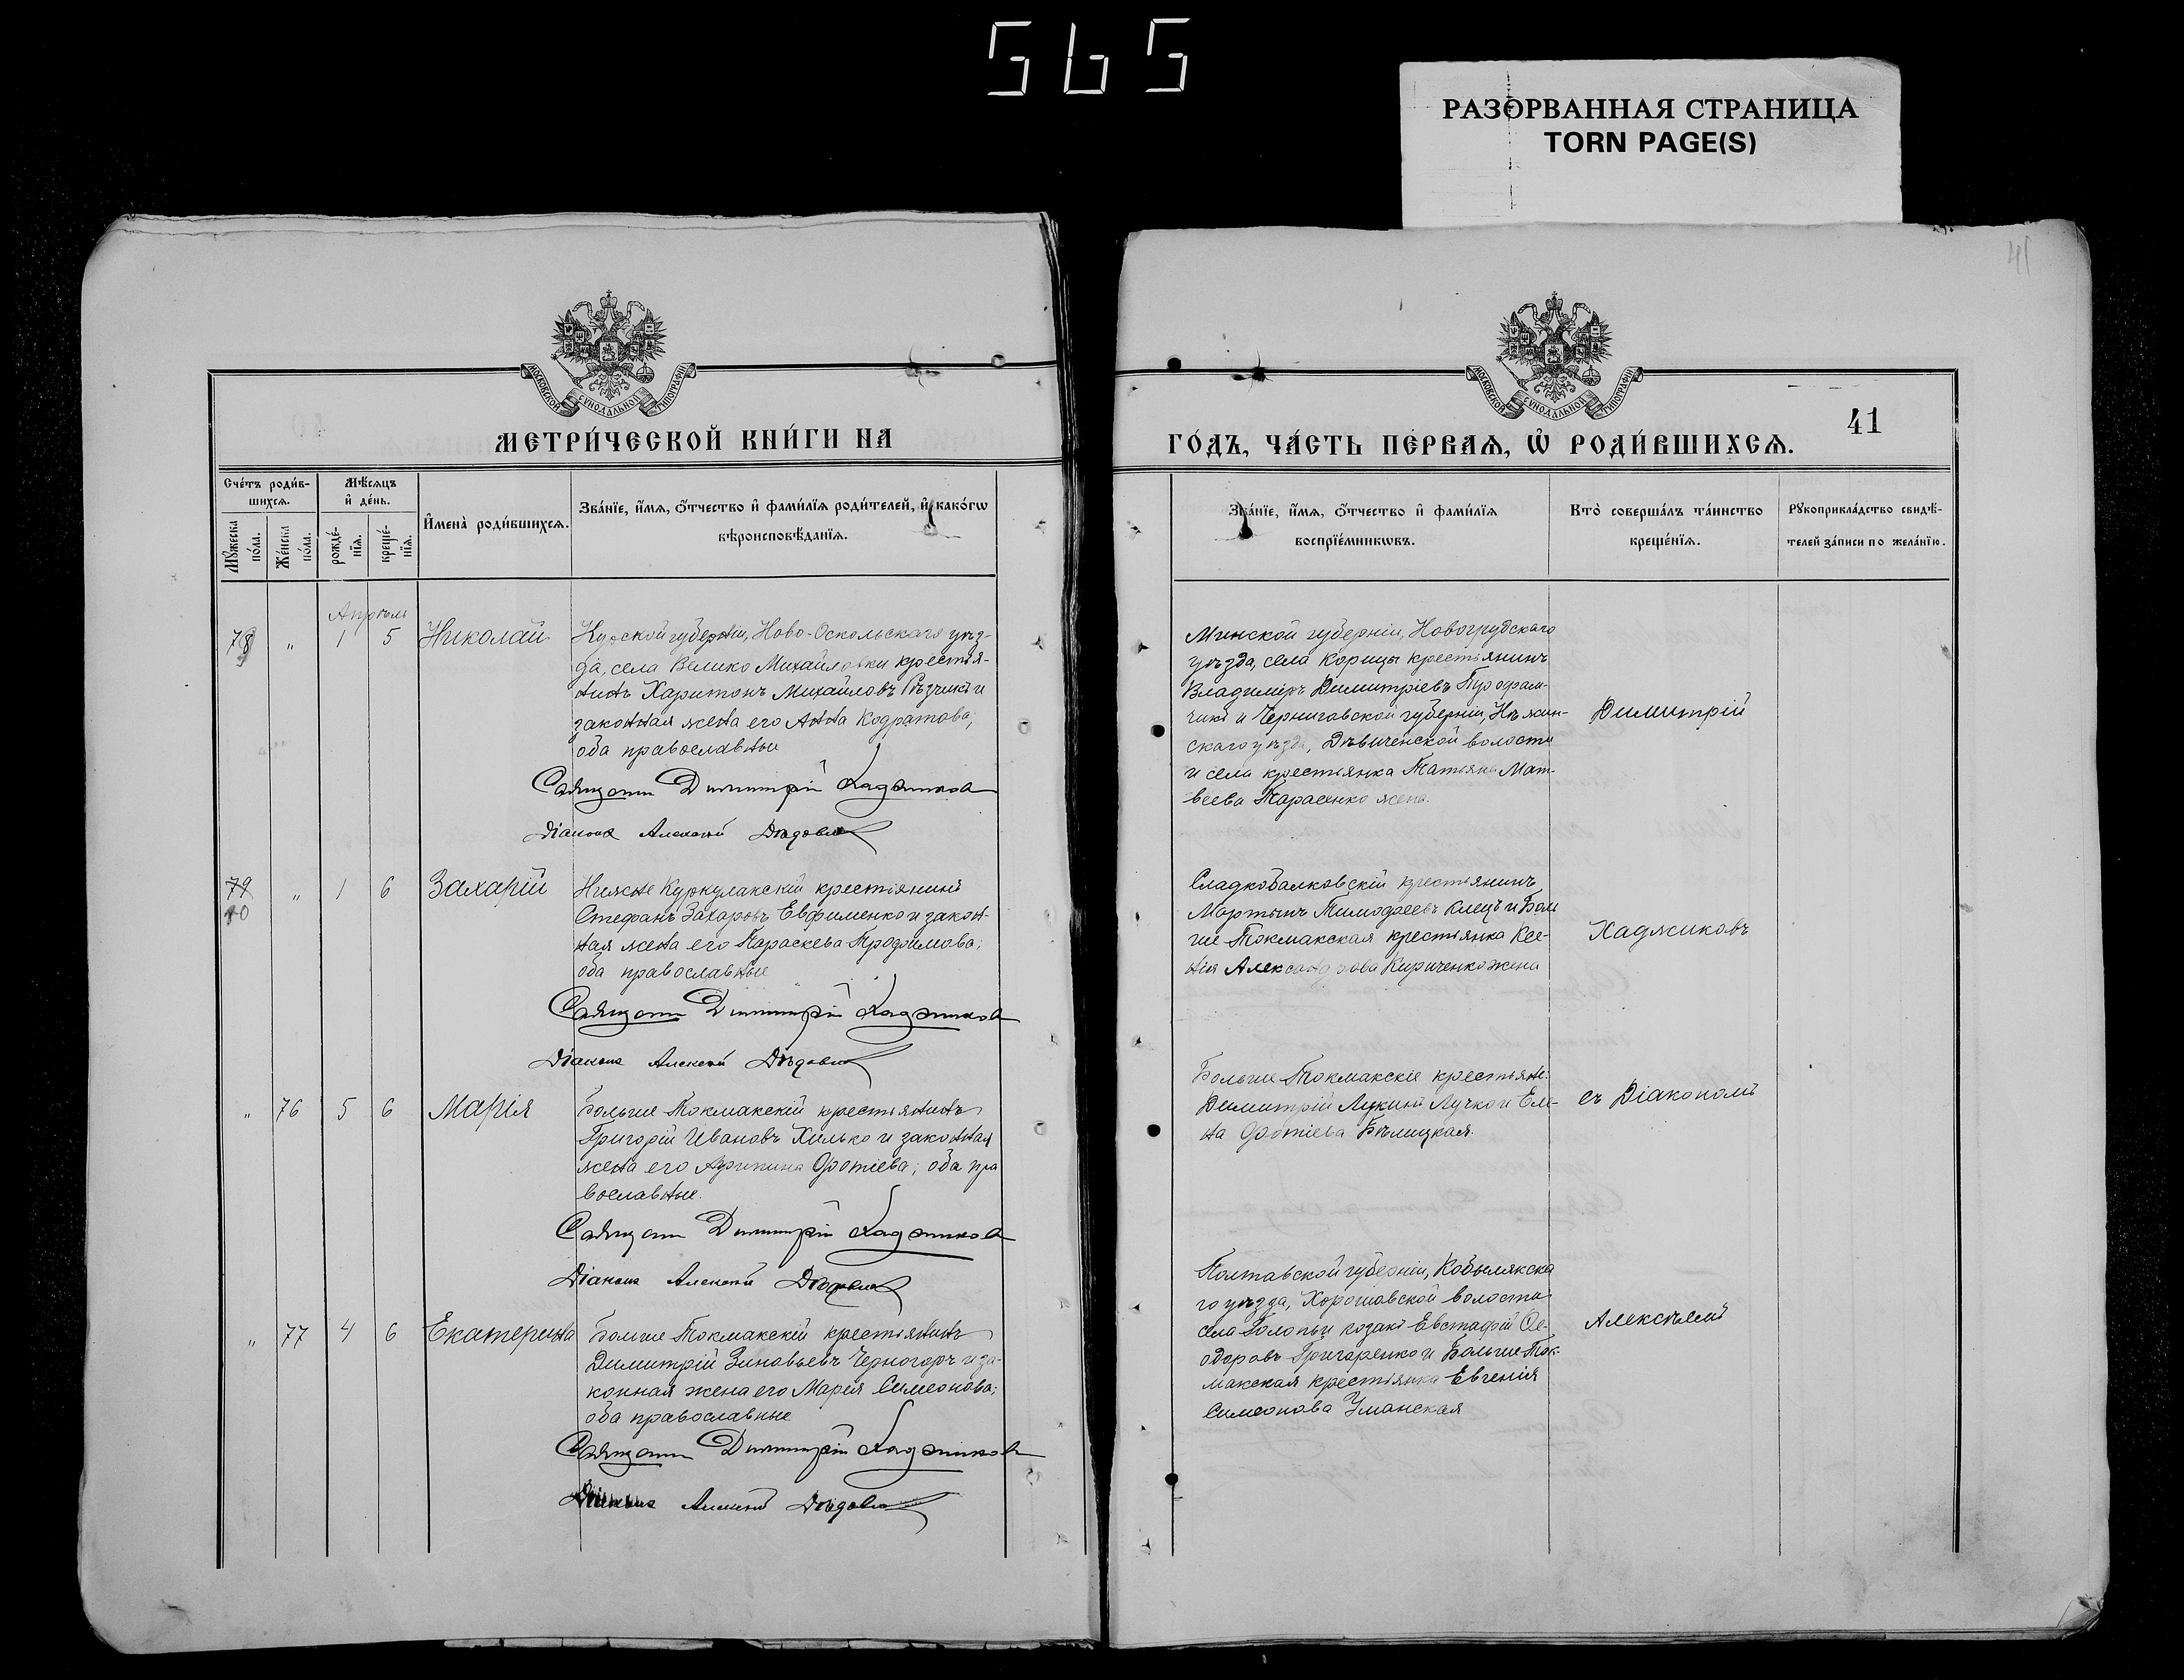 565
РАЗОРВАННАЯ СТРАНИЦА
TORN PAGE(S)
41
МОСКОВСКОЙ СѴНОДАЛЬНОЙ ТИПОГРАФІИ
МЕТРИ́ЧЕСКОЙ КНИ́ГИ НА
Сче́тъ роди́в-
шихсѧ.
Мꙋ́жеска
по́ла.
Же́нска
по́ла.
Мѣ́сѧцъ
и҆ де́нь.
рожде́-
нїѧ.
креще́-
нїѧ.
И҆мена̀ роди́вшихсѧ.
Зва́нїе, и҆́мѧ, ѻ҆́тчество и҆ фами́лїѧ роди́телей, и҆ како́гѡ
вѣроисповѣ́данїѧ.
Апрѣль
78 " 1 5 Николай
Курской губерніи, Ново-Оскольскаго уѣз-
да, села Велико Михайловки крестья-
нинъ Харитонъ Михайловъ Рѣзчикъ и
законная жена его Анна Кодратова;
оба православные
Священ Димитрій Хаджиковъ
Діаконъ Алексѣй Дѣдовъ
79 " 1 6 Захарій
Нижне Куркулакскій крестьянинъ
Стефанъ Захаровъ Евфименко и закон-
ная жена его Параскева Трофимова;
оба православные
Священ Димитрій Хаджиковъ
Діаконъ Алексѣй Дѣдовъ
" 76 5 6 Марія
Больше Токмакскій крестьянинъ
Григорій Ивановъ Хилько и законная
жена его Агрипина Фотіева; оба пра
вославные.
Священ Димитрій Хаджиковъ
Діаконъ Алексѣй Дѣдовъ
" 77 4 6 Екатерина
Больше Токмакскій крестьянинъ
Димитрій Зиновьевъ Черногоръ и за-
конная жена его Марія Симеонова;
оба православные
Священ Димитрій Хаджиковъ
Діаконъ Алексѣй Дѣдовъ
41
МОСКОВСКОЙ СѴНОДАЛЬНОЙ ТИПОГРАФІИ
ГО́ДЪ, ЧА́СТЬ ПЕ́РВАѦ, Ѡ҆ РОДИ́ВШИХСѦ.
Зва́нїе, и҆́мѧ, ѻ҆́тчество и҆ фами́лїѧ
воспрїе́мникѡвъ.
Кто̀ соверша́лъ та́инство
креще́нїѧ.
Рꙋкоприкла́дство свидѣ́-
телей за́писи по жела́нїю.
Минской губерніи, Новогрудскаго
уѣзда, села Корицы крестьянинъ
Владиміръ Димитріевъ
и Черниговской губерніи, Нѣжин-
скаго уѣзда, Дѣвиченской волости
и села крестьянка Татьяна Мат-
веева Тарасенко жена.
Димитрій
Сладкобалковскій крестьянинъ
Мартынъ Тимофеевъ Клецъ и Боль
ше Токмакская крестьянка Ксе-
нія Александрова Кириченко жена
Хаджиковъ
Больше Токмакскіе крестьяне:
Димитрій Лукинъ Лучко и Еле-
на Фотіева Бѣлицкая.
съ Діакономъ
Полтавской губерніи, Кобылякска
го уѣзда, Хорошавской волости
села козакъ Евстафій Ѳе-
одоровъ Григоренко и Больше Ток-
макская крестьянка Евгенія
Симеонова Уманская
Алексѣемъ